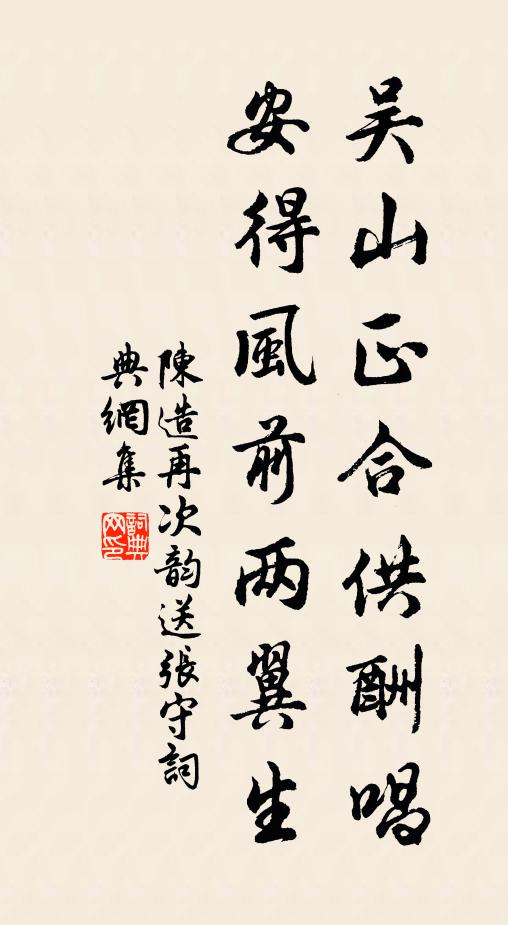 吴山正合供酬唱
安得風前两翼生
陳造再次韵送張守詞
典網集
詞典网印